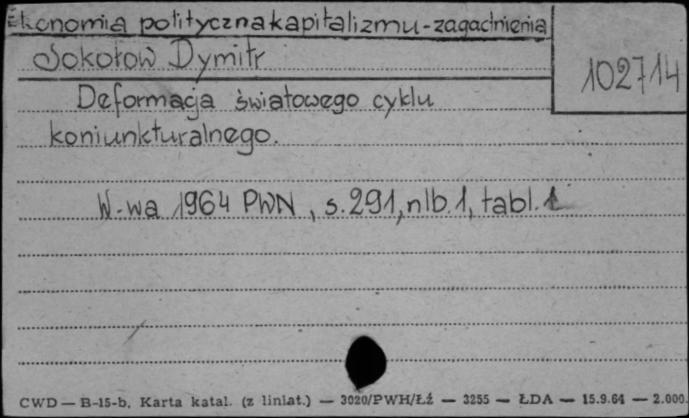 Ekonomia polityczna kapitalizmu - zagadnienia
Sokołow Dymitr
102714
Deformacja światowego cyklu
koniunkturalnego.
W-wa 1964 PWN, s.291, nlb.1, tabl.1
CWD — B-15-b, Karta katal. (z liniat.) — 3020/PWH/Łź — 3255 — ŁDA — 15.9.64 — 2.000.